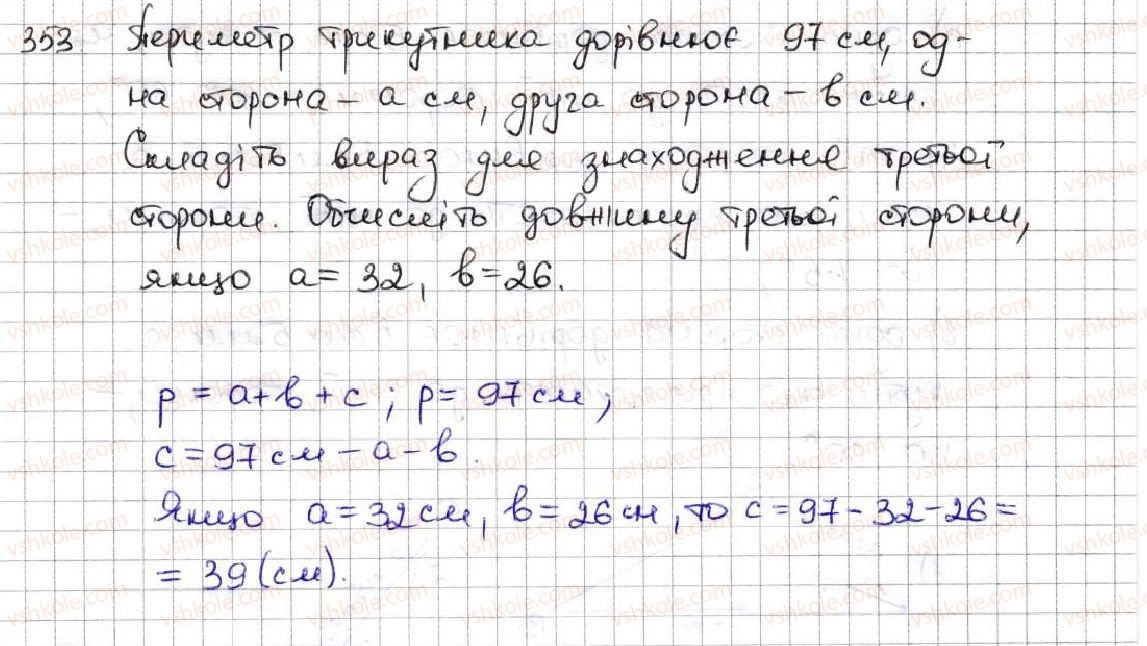 353 Периметр трикутника дорівнює 97 см, од-
на сторона - a см, друга сторона - b см.
Складіть вираз для знаходження третьої
сторони. Обчисліть довжину третьої сторони,
якщо a = 32, b = 26.
p = a + b + c ; p = 97 см ;
c = 97 см - a - b.
Якщо a = 32 см, b = 26 см, то c = 97 - 32 - 26 =
= 39 (см).